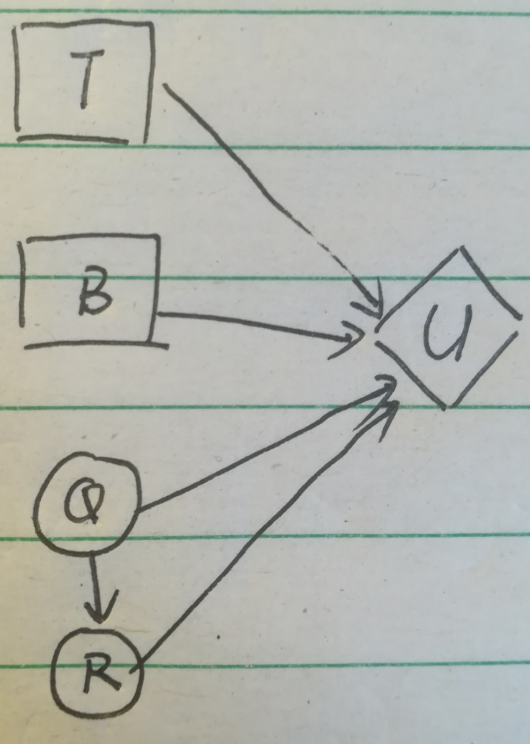 T
B
U
Q
R